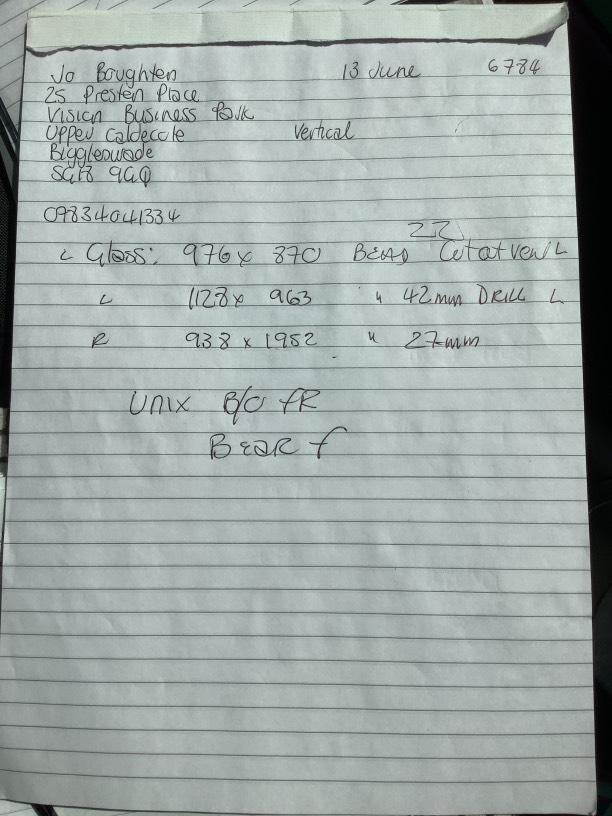 Jo Boughten 13 June 6784
25 Presten Place
Vision Business Park
Upper Caldecote Vertical
Biggleswade
SG18 9GQ
09834041334
22
L Glass: 976 x 870 BEAD Cut at ven/L
L 1128 x 963 " 42mm DRILL L
R 938 x 1952 " 27mm
Unix B/O fR
BEAR f